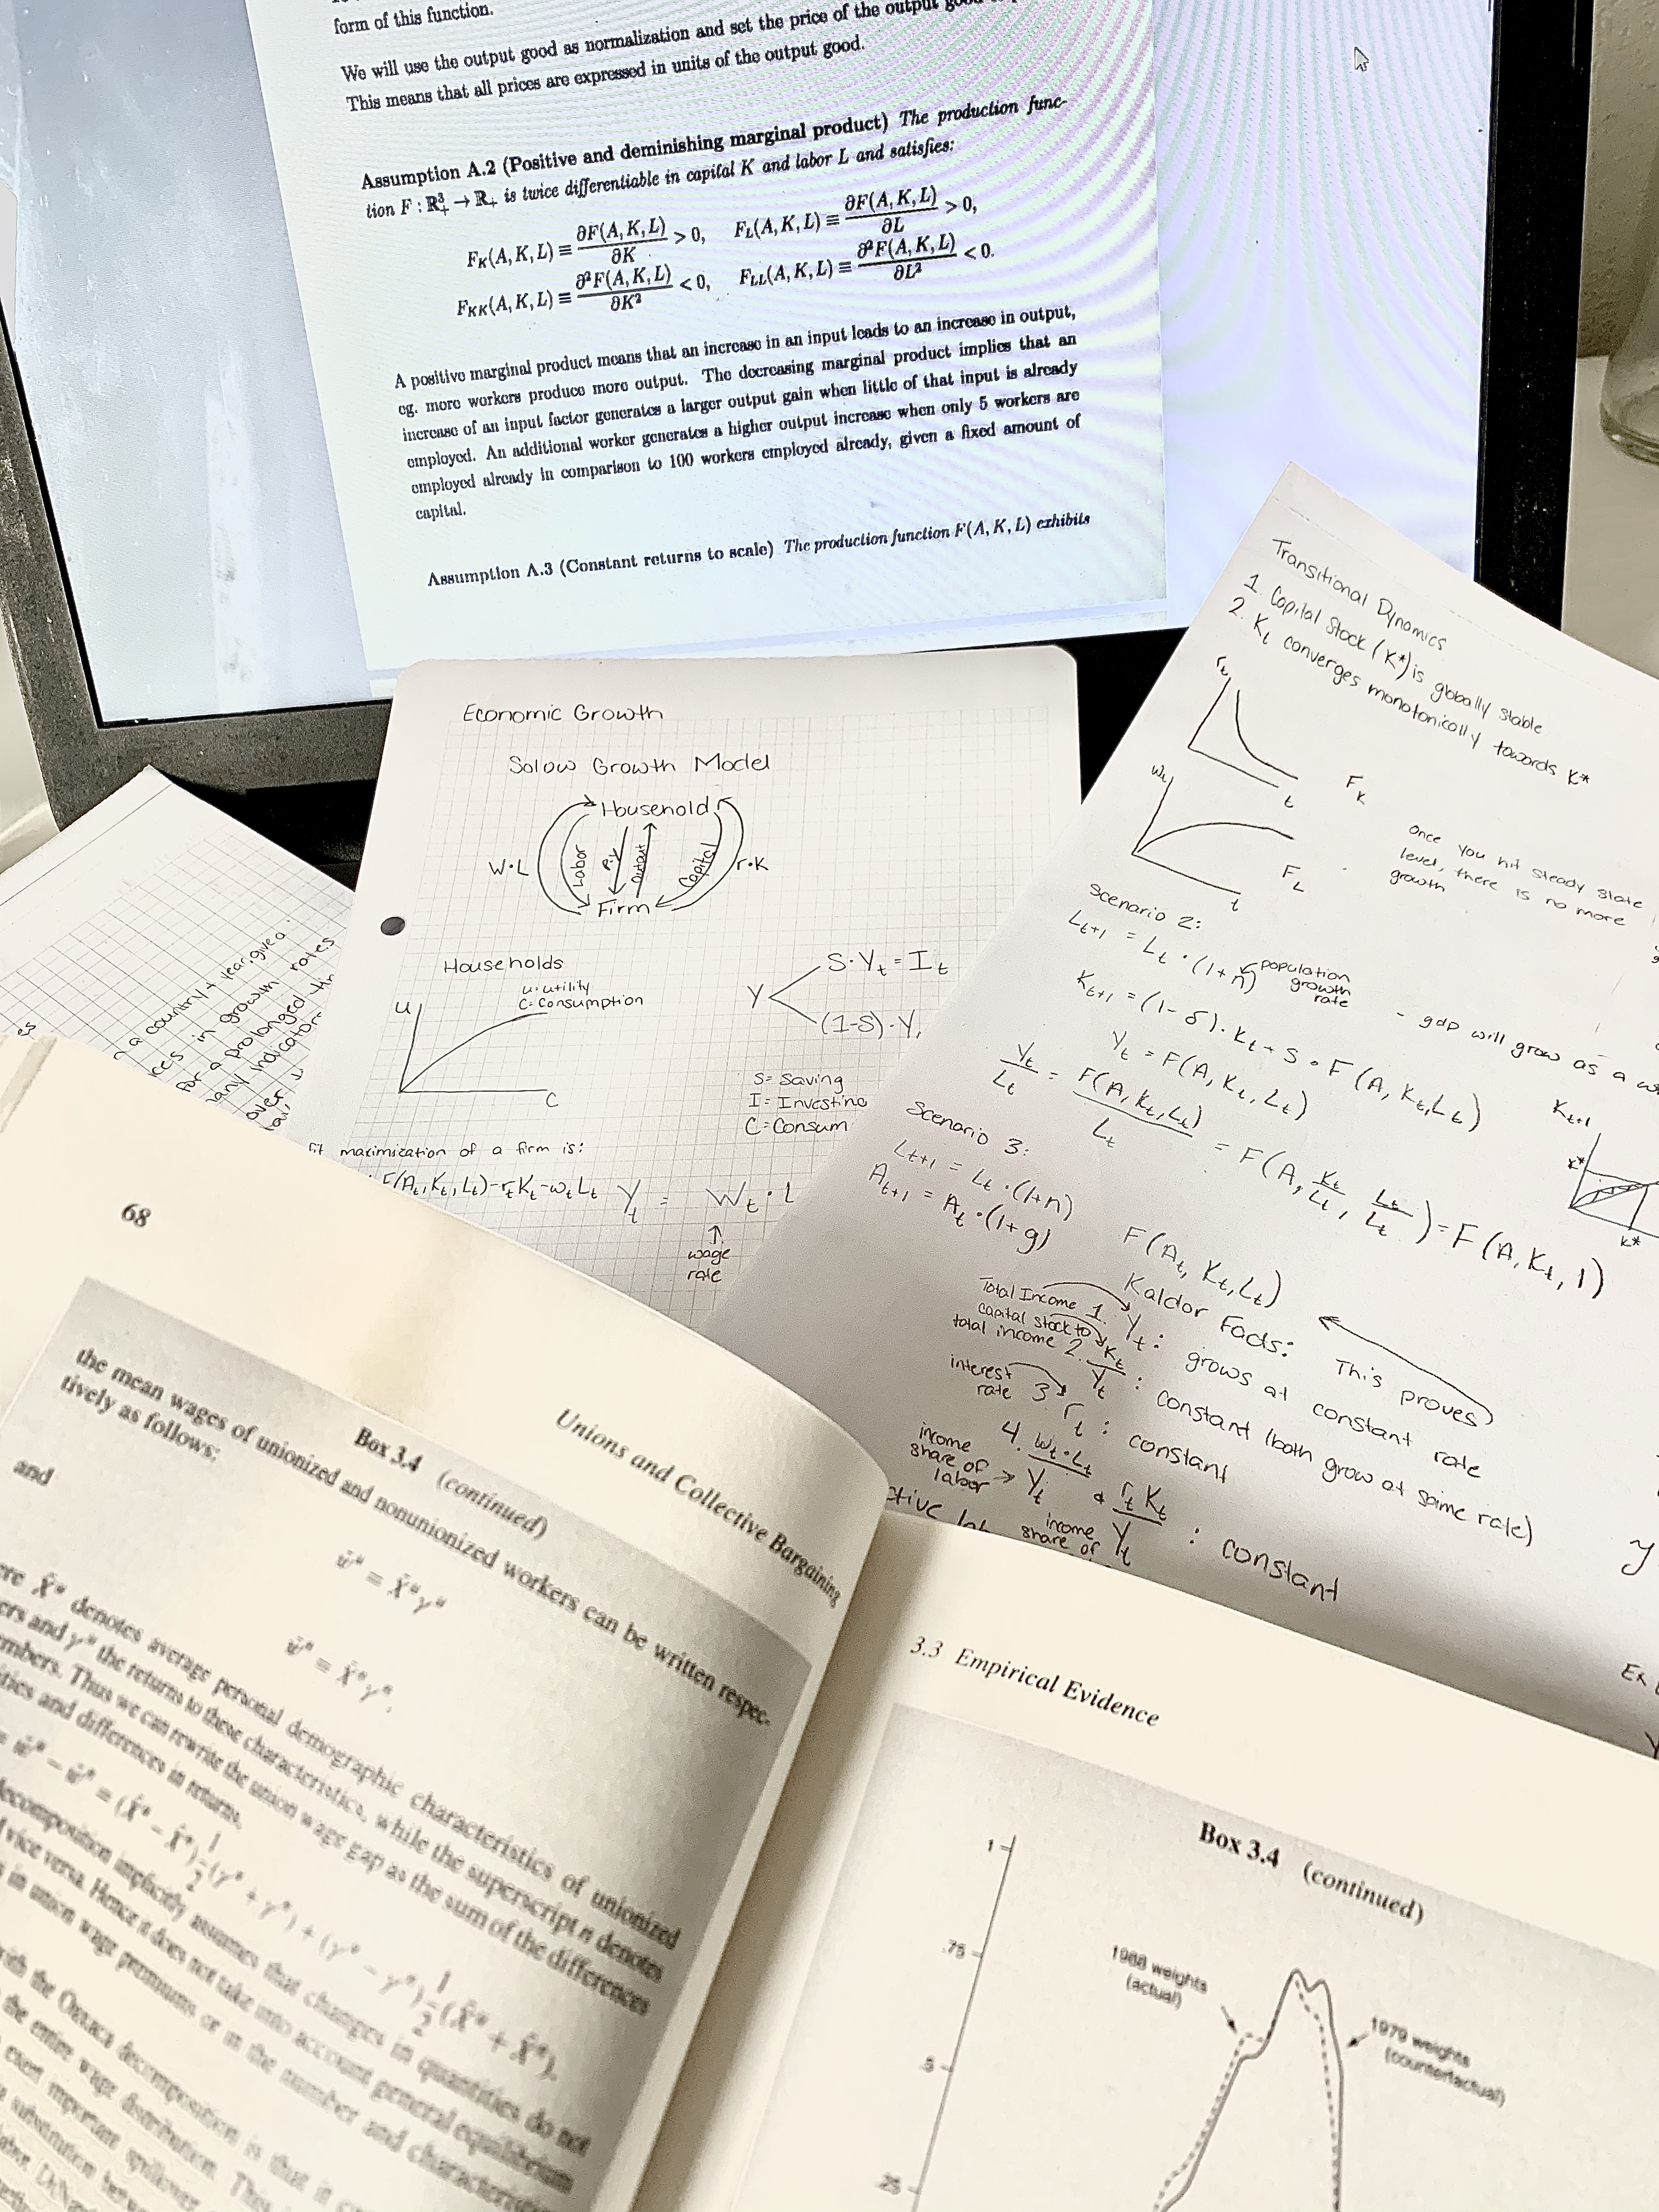 form of this function.
We will use the output good as normalization and set the price of the output good
This means that all prices are expressed in units of the output good.
Assumption A.2 (Positive and deminishing marginal product) The production func-
tion F : ℝ³₊ → ℝ₊ is twice differentiable in capital K and labor L and satisfies:
F_K(A, K, L) ≡ ∂F(A, K, L)/∂K > 0, F_L(A, K, L) ≡ ∂F(A, K, L)/∂L > 0,
F_KK(A, K, L) ≡ ∂²F(A, K, L)/∂K² < 0, F_LL(A, K, L) ≡ ∂²F(A, K, L)/∂L² < 0.
A positive marginal product means that an increase in an input leads to an increase in output,
eg. more workers produce more output. The decreasing marginal product implies that an
increase of an input factor generates a larger output gain when little of that input is already
employed. An additional worker generates a higher output increase when only 5 workers are
employed already in comparison to 100 workers employed already, given a fixed amount of
capital.
Assumption A.3 (Constant returns to scale) The production function F(A, K, L) exhibits
Economic Growth
Solow Growth Model
Household
W·L
Labor
P·Y
Output
Capital
r·K
Firm
Households
u: utility
C: Consumption
U
C
Y
S·Y_t = I_t
(1-S)·Y
S = Saving
I = Investing
C = Consum
maximization of a firm is:
F(A_t, K_t, L_t) - r_t K_t - w_t L_t
Y_t = W_t · L
wage
rate
a country + year, give a
ces in growth rates
for a prolonged
any indicators
over
Transitional Dynamics
1. Capital Stock (K*) is globally stable
2. K_t converges monotonically towards K*
r_t
t
F_K
W_t
t
F_L
Once you hit steady state
level, there is no more
growth
Scenario 2:
L_t+1 = L_t · (1+n)
population
growth
rate
K_t+1 = (1-δ) · K_t + S · F(A, K_t, L_t)
- gdp will grow as a
Y_t = F(A, K_t, L_t)
Y_t/L_t = F(A, K_t, L_t)/L_t = F(A, K_t/L_t, L_t/L_t) = F(A, K_t, 1)
K_t+1
K*
K*
Scenario 3:
L_t+1 = L_t · (1+n)
A_t+1 = A_t · (1+g)
F(A_t, K_t, L_t)
Kaldor Facts:
This proves
Total Income
1. Y_t : grows at constant rate
capital stock to
total income
2. K_t/Y_t : constant (both grow at same rate)
interest
rate
3. r_t : constant
income
share of
labor
4. W_t·L_t/Y_t & r_t K_t/Y_t : constant
income
share of
Ex
68
Unions and Collective Bargaining
Box 3.4 (continued)
the mean wages of unionized and nonunionized workers can be written respec-
tively as follows:
w̄ᵘ = X̄ᵘγᵘ
and
w̄ⁿ = X̄ⁿγⁿ,
X̄ᵘ denotes average personal demographic characteristics of unionized
and γᵘ the returns to these characteristics, while the superscript n denotes
Thus we can rewrite the union wage gap as the sum of the differences
and differences in returns,
w̄ᵘ − w̄ⁿ = (X̄ᵘ − X̄ⁿ) 1/2 (γᵘ + γⁿ) + (γᵘ − γⁿ) 1/2 (X̄ᵘ + X̄ⁿ).
decomposition implicitly assumes that changes in quantities do not
vice versa. Hence it does not take into account general equilibrium
in union wage premiums or in the number and characteristics
with the Oaxaca decomposition is that it
the entire wage distribution. This
exert important spillover
substitution between
3.3 Empirical Evidence
Box 3.4 (continued)
1
.75
.5
.25
1988 weights
(actual)
1979 weights
(counterfactual)